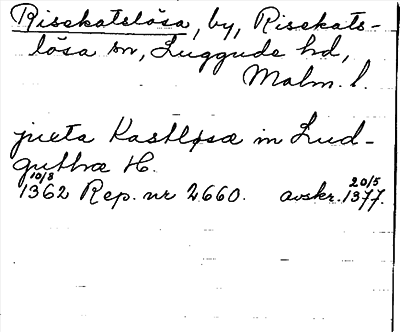 Risekatslösa, by, Risekats-
lösa sn, Luggude hd,
Malm. l.
juxta Kastløsæ in Lud-
guthræ H.
10/8 1362 Rep. nr 2660. avskr. 20/5 1377.